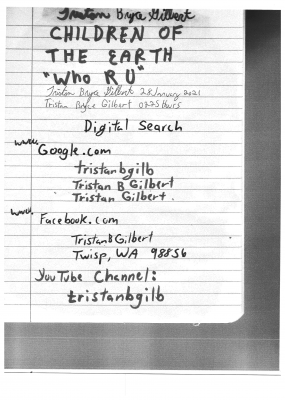 Tristan Bryce Gilbert
CHILDREN OF
THE EARTH
"Who R U"
Tristan Bryce Gilbert 28 January 2021
Tristan Bryce Gilbert 0225 hours
Digital Search
www.
Google.com
tristanbgilb
Tristan B Gilbert
Tristan Gilbert.
www.
Facebook.com
TristanBGilbert
Twisp, WA 98856
YouTube Channel:
tristanbgilb